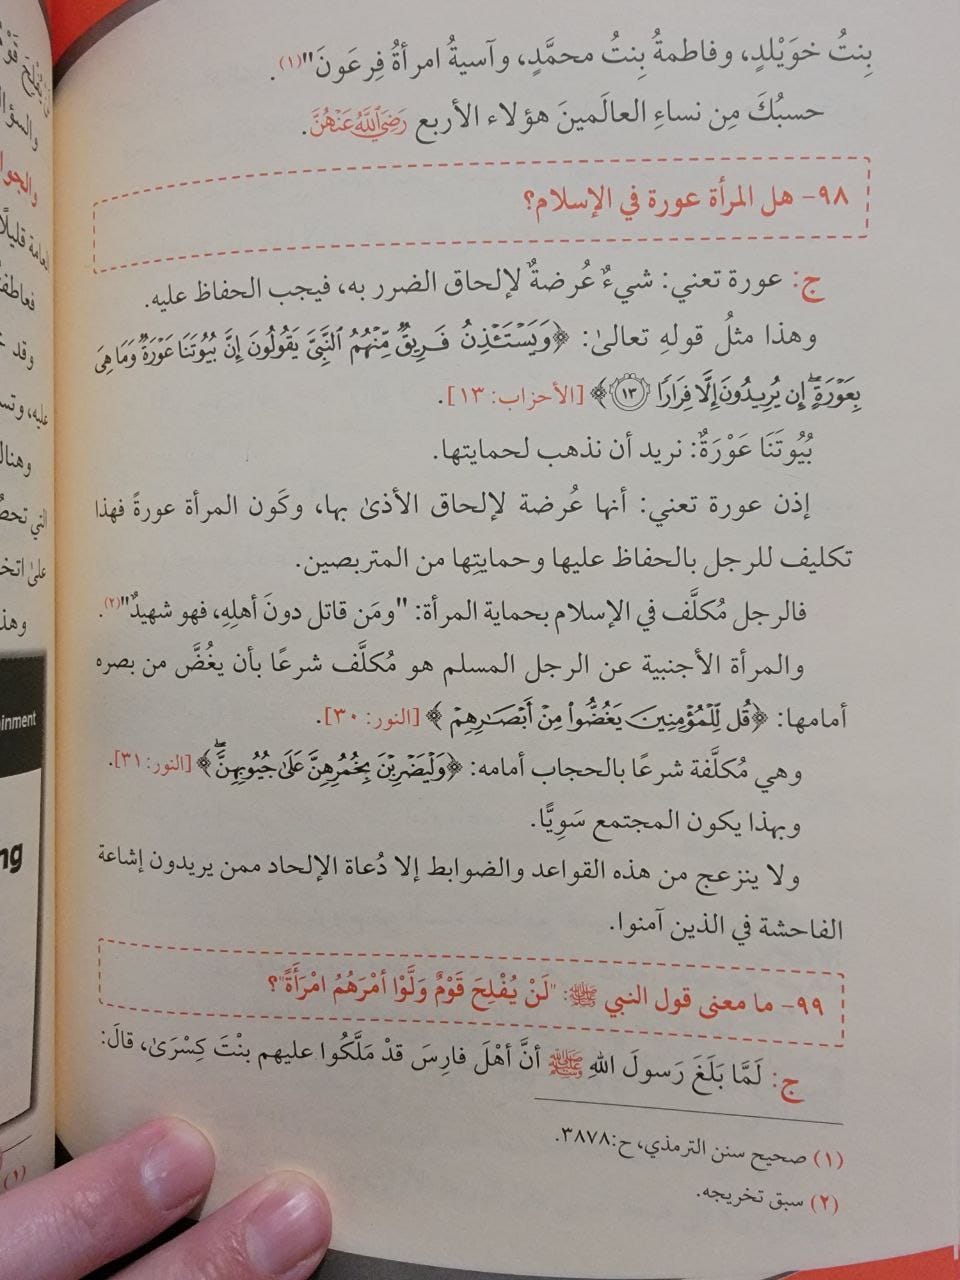 بِنتُ خوَيْلدٍ، وفاطمةُ بِنتُ محمَّدٍ، وآسيةُ امرأةُ فِرعَونَ"(١).
حسبُكَ مِن نساءِ العالَمينَ هؤلاء الأربع رَضِيَ اللَّهُ عَنْهُنَّ.
٩٨- هل المرأة عورة في الإسلام؟
ج: عورة تعني: شيءٌ عُرضةٌ لإلحاق الضرر به، فيجب الحفاظ عليه.
وهذا مثلُ قولهِ تعالىٰ: ﴿وَيَسْتَـْٔذِنُ فَرِيقٌ مِّنْهُمُ ٱلنَّبِىَّ يَقُولُونَ إِنَّ بُيُوتَنَا عَوْرَةٌ وَمَا هِىَ
بِعَوْرَةٍ ۖ إِن يُرِيدُونَ إِلَّا فِرَارًا ١٣﴾ [الأحزاب: ١٣].
بُيُوتَنَا عَوْرَةٌ: نريد أن نذهب لحمايتها.
إذن عورة تعني: أنها عُرضة لإلحاق الأذىٰ بها، وكَون المرأة عورةً فهذا
تكليف للرجل بالحفاظ عليها وحمايتِها من المتربصين.
فالرجل مُكلَّف في الإسلام بحماية المرأة: "ومَن قاتل دونَ أهلِهِ، فهو شهيدٌ"(٢).
والمرأة الأجنبية عن الرجل المسلم هو مُكلَّف شرعًا بأن يغُضَّ من بصره
أمامها: ﴿قُل لِّلْمُؤْمِنِينَ يَغُضُّوا۟ مِنْ أَبْصَـٰرِهِمْ﴾ [النور: ٣٠].
وهي مُكلَّفة شرعًا بالحجاب أمامه: ﴿وَلْيَضْرِبْنَ بِخُمُرِهِنَّ عَلَىٰ جُيُوبِهِنَّ ۖ﴾ [النور: ٣١].
وبهذا يكون المجتمع سَوِيًّا.
ولا ينزعج من هذه القواعد والضوابط إلا دُعاة الإلحاد ممن يريدون إشاعة
الفاحشة في الذين آمنوا.
٩٩- ما معنى قول النبي ﷺ: "لَنْ يُفْلِحَ قَوْمٌ وَلَّوْا أمْرَهُمُ امْرَأَةً"؟
ج: لَمَّا بَلَغَ رَسولَ اللهِ ﷺ أنَّ أهْلَ فارِسَ قدْ مَلَّكُوا عليهم بنْتَ كِسْرَىٰ، قالَ:
(١) صحيح سنن الترمذي، ح:٣٨٧٨.
(٢) سبق تخريجه.